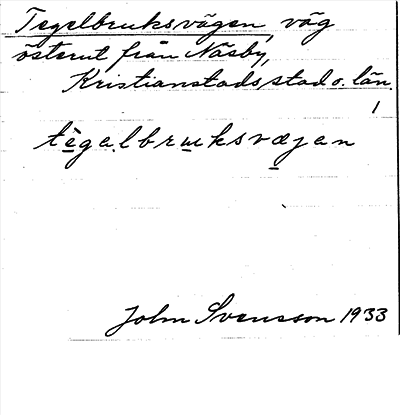 Tegelbruksvägen, väg
österut från Näsby,
Kristianstads stad o. län.
1
tegalbruksvæjan
John Svensson 1933